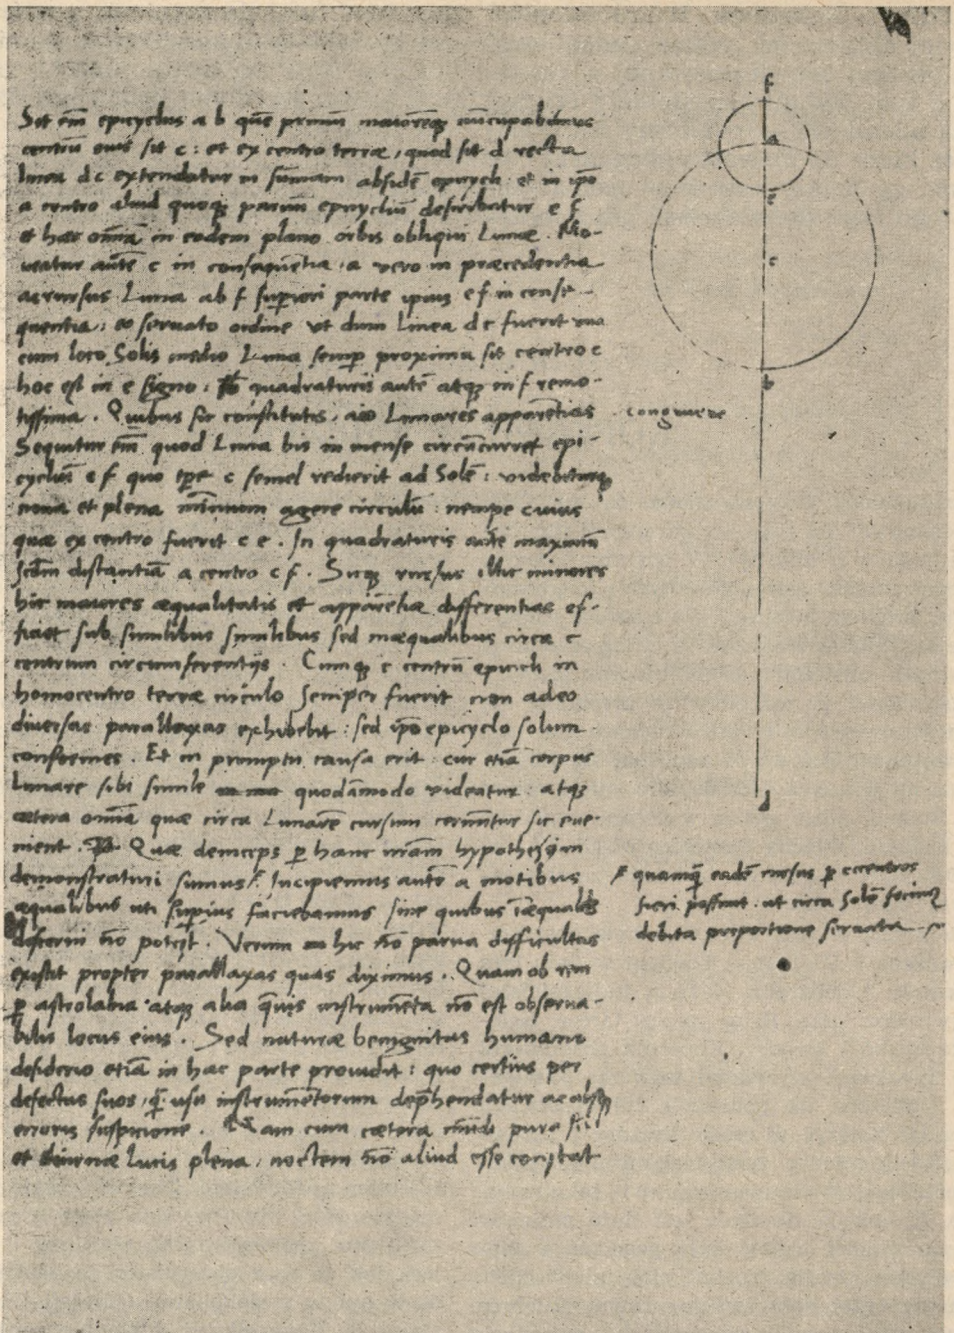 Sit em̄ epicyclus a b quē primū maiorēq̨ nūcupabimus
centrū cuius sit c : et ex centro terræ, quod sit d recta
linea d c extendatur in sūmam absidē epicycli et in ip̄o
a centro aliud quoq̨ parvū epicycliū describatur e f
et hæc omīa in eodem plano orbis obliqui Lunæ. Mo-
ueatur autē c in consequentia, a vero in præcedentia
ac rursus Luna ab f sup̱iori parte ipius e f in conse-
quentia : eo seruato ordine ut dum linea d c fuerit una
cum loco Solis medio Luna semp̱ proxima sit centro c
hoc est in e signo : quadraturis autē atq̨ in f remo-
tissima. Quibus sic constitutis, aio Lunares apparētias congruere
Sequitur em̄ quod Luna bis in mense circūcurret epi-
cycliū e f quo tp̄e c semel redierit ad Solē : videbiturq̨
noua et plena minimum agere circulū : nempe cuius
quæ ex centro fuerit c e. In quadraturis autē maximū
sc̄dm distantiā a centro c f. Sicq̨ rursus illic minores
hic maiores æqualitatis et apparētiæ differentias ef-
ficiet sub similibus similibus sed inæqualibus circa c
centrum circumferentijs. Cumq̨ c centrū epicicli in
homocentro terræ circulo semper fuerit non adeo
diuersas parallaxas exhibebit : sed ip̄o epicyclo solum
conformes. Et in promptu causa erit cur etiā corpus
Lunare sibi simile quodāmodo videatur : atq̨
cætera omīa quæ circa Lunarē cursum cernūtur sic eue-
nient. Quæ deinceps p̱ hanc nr̄am hypothesim
demonstraturi sumus. Incipiemus autē a motibus
æqualibus uti sup̱ius faciebamus sine quibus īæqualis
discerni nō potest. Verum hic nō parva difficultas
existit propter parallaxas quas diximus. Quam ob rem
p̱ astrolabia atq̨ alia q̄uis instrumēta nō est obserua-
bilis locus eius. Sed naturæ benignitas humano
desiderio etiā in hac parte prouidit : quo certius per
defectus suos, q̄ usu instrumētorum dep̱hendatur ac absq̨
erroris suspicione. Nam cum cætera mūdi pura sit
et diurnæ lucis plena, noctem nō aliud esse constat
f
a
e
c
b
d
quamq̄ eadē rursus p̱ eccentros
fieri possint. ut circa Solē fecimus
debita proportione seruata